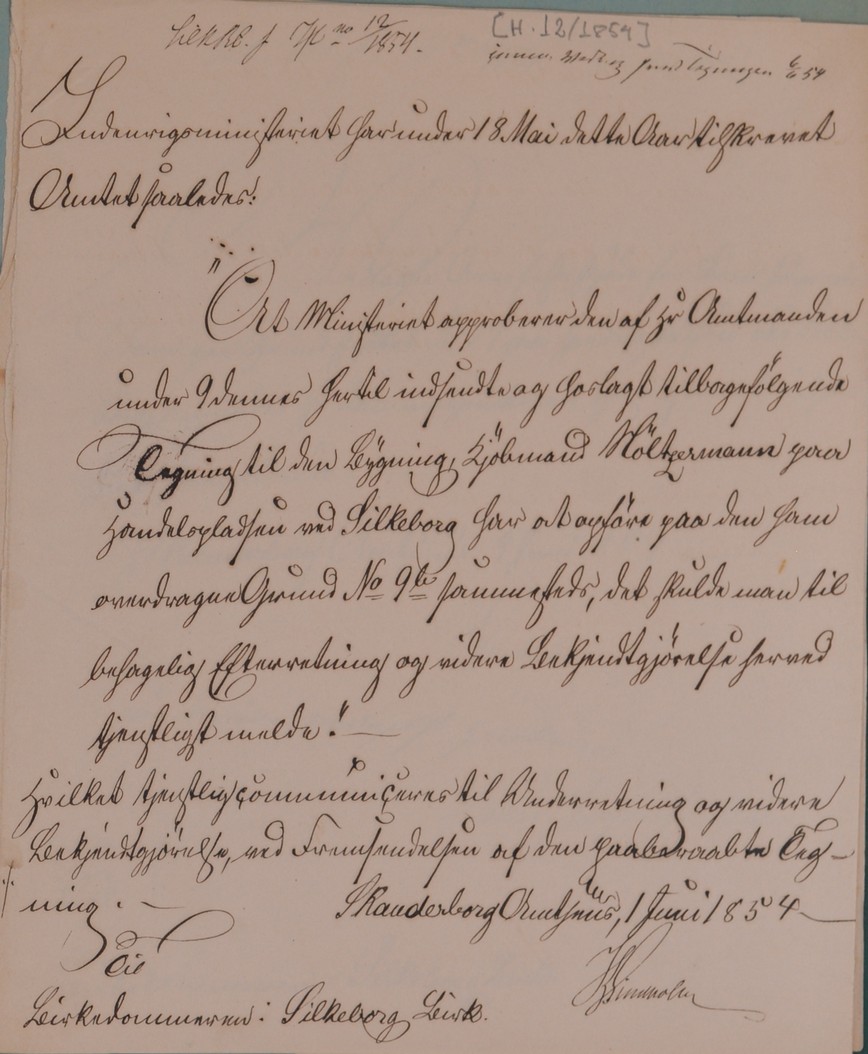 no 12/1854.
[H. 12/1854]
6/6 54
Indenrigsministeriet har under 18 Mai dette Aar tilskrevet
Amtet saaledes:
"At Ministeriet approberer den af Hr Amtmanden
under 9 dennes hertil indsendte og hoslagt tilbagefølgende
Tegning til den Bygning, Kjöbmand Nöltzermann paa
Handelspladsen ved Silkeborg har at opföre paa den ham
overdragne Grund No 9b sammesteds, det skulde man til
behagelig Efterretning og videre Bekjendtgjörelse herved
tjenstligst melde."
Hvilket tjenstlig communiceres til Underretning og videre
Bekjendtgjörelse, ved Fremsendelsen af den paaberaabte Teg-
ning. -
Skanderborg Amthuus, 1 Juni 1854
Til
Birkedommeren i Silkeborg Birk.